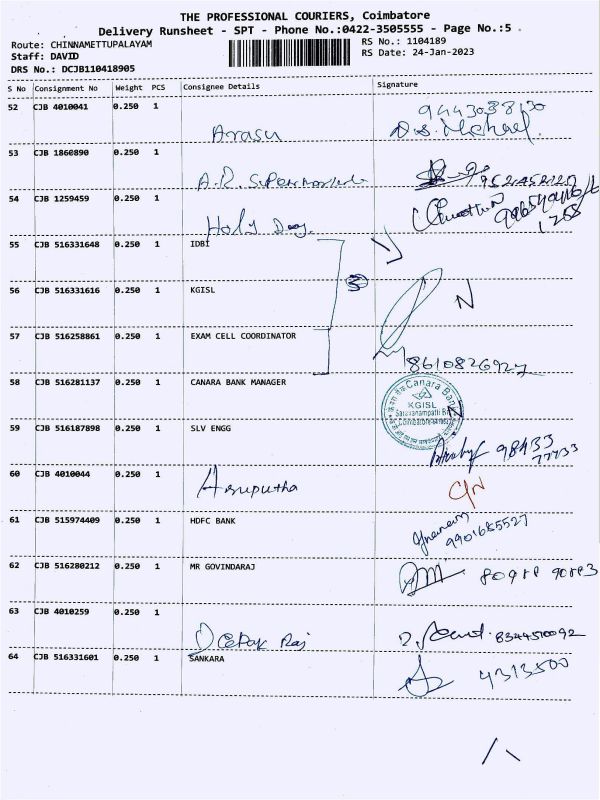 THE PROFESSIONAL COURIERS, Coimbatore
Delivery Runsheet - SPT - Phone No.:0422-3505555 - Page No.:5
Route: CHINNAMETTUPALAYAM
Staff: DAVID
DRS No.: DCJB110418905
RS No.: 1104189
RS Date: 24-Jan-2023
S No Consignment No Weight PCS Consignee Details Signature
52 CJB 4010041 0.250 1 Arasu
53 CJB 1860890 0.250 1
54 CJB 1259459 0.250 1 Holy
55 CJB 516331648 0.250 1 IDBI
56 CJB 516331616 0.250 1 KGISL N
57 CJB 516258861 0.250 1 EXAM CELL COORDINATOR 8610826927
58 CJB 516281137 0.250 1 CANARA BANK MANAGER
Canara Bank
KGISL
59 CJB 516187898 0.250 1 SLV ENGG 98433
77733
60 CJB 4010044 0.250 1 Aruputha
61 CJB 515974409 0.250 1 HDFC BANK
9901685527
62 CJB 516280212 0.250 1 MR GOVINDARAJ
63 CJB 4010259 0.250 1 Deepak Raj 8344510092
64 CJB 516331601 0.250 1 SANKARA 4313500